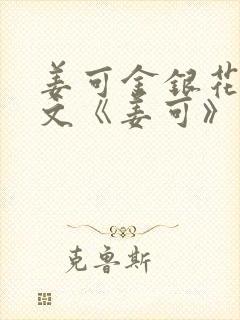 姜可金银花
文《姜可》
克鲁斯